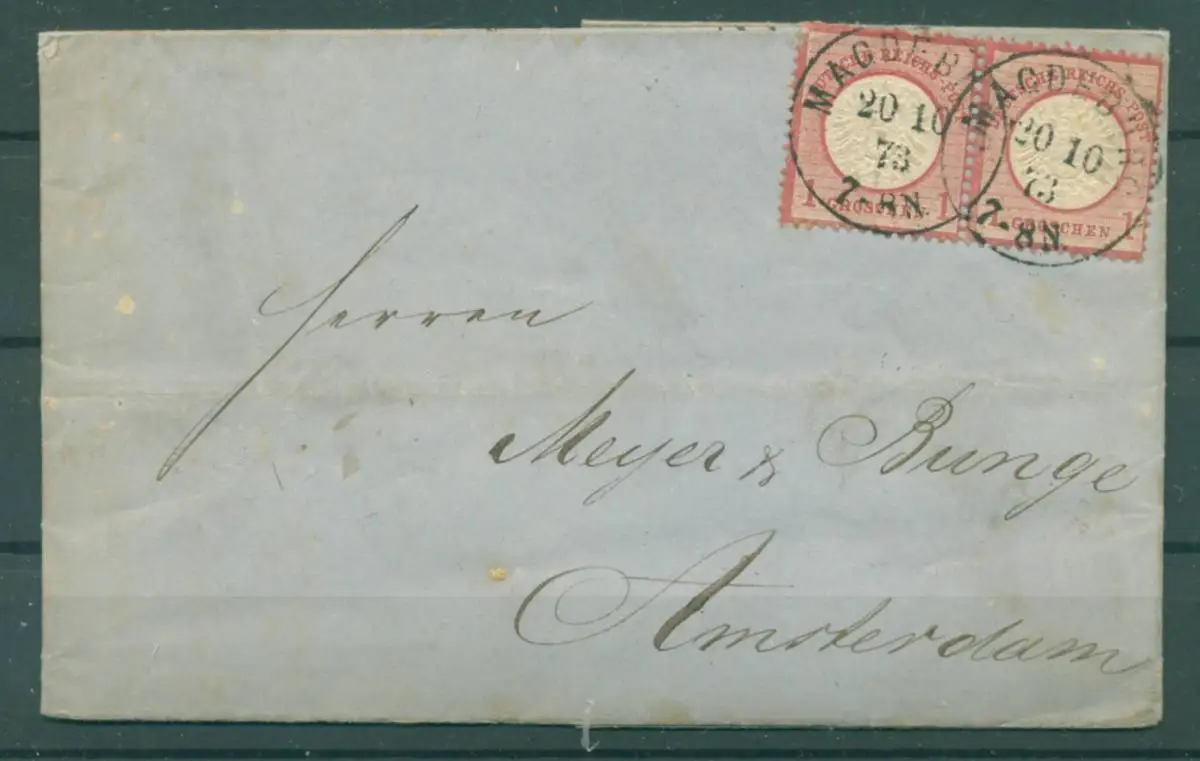 MAGDEB
20 10
73
7-8N.
DEUTSCHE REICHS-POST
1 GROSCHEN 1
MAGDEBURG
20 10
73
7-8N.
DEUTSCHE REICHS-POST
1 GROSCHEN 1
Herren
Meyer & Bunge
Amsterdam